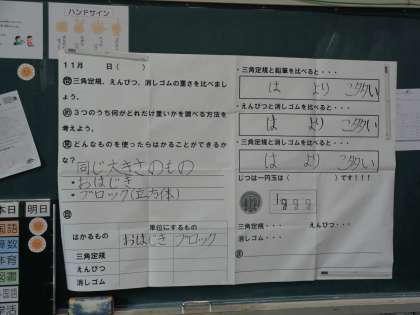 ハンドサイン
11月　　日(　　)
問三角定規、えんぴつ、消しゴムの重さを比べまし
ょう。
め3つのうち何がどれだけ重いかを調べる方法を
考えよう。
どんなものを使ったらはかることができるか
な?
同じ大きさのもの
・おはじき
・ブロック(立方体)
単位にするもの
はかるもの
おはじき　ブロック
三角定規
えんぴつ
消しゴム
・三角定規と鉛筆を比べると・・・
は　より　こ多い
・えんぴつと消しゴムを比べると・・・
は　より　こ多い
・三角定規と消しゴムを比べると・・・
は　より　こ多い
じつは一円玉は(　　　　)です!!!
三角定規・・・　えんぴつ・・・
消しゴム・・・
本日　明日
国語
算数
体育